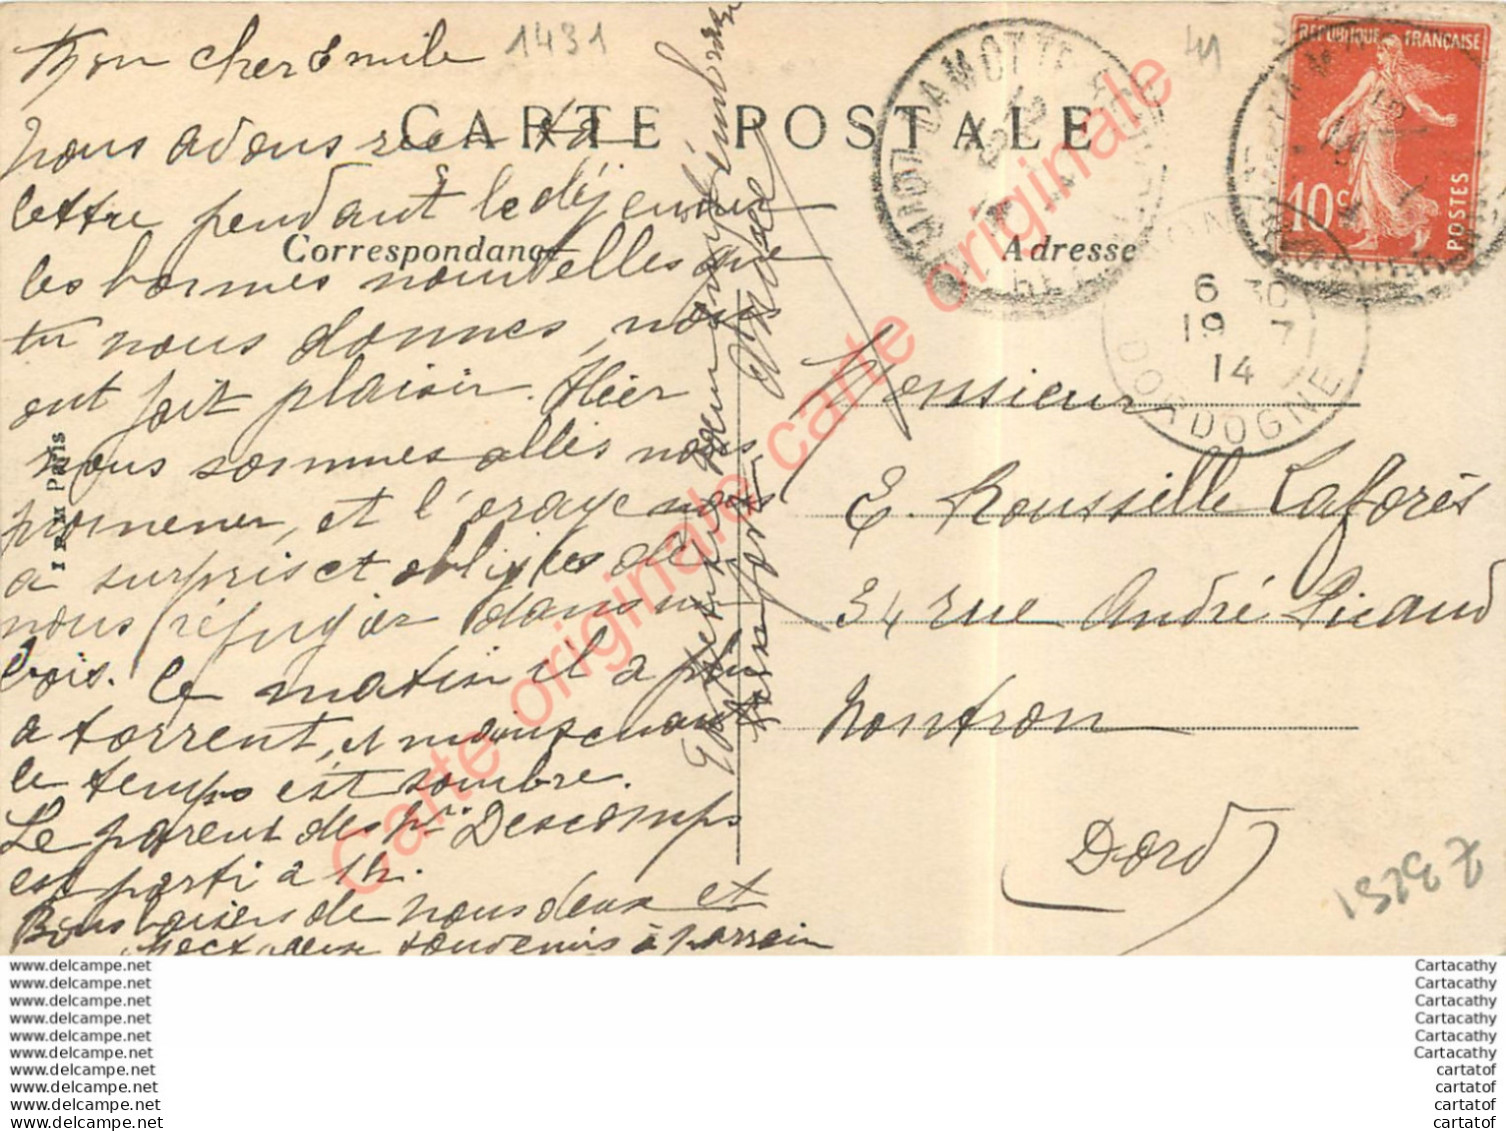 Mon cher Emile
1431
41
CARTE POSTALE
Nous avons reçu ta
lettre pendant le déjeuner
Correspondance
Adresse
les bonnes nouvelles que
tu nous donnes, nous
ont fait plaisir. Hier
nous sommes allés nous
promener, et l'orage nous
a surpris et obligés de
nous réfugier dans un
bois. Le matin il a plu
a torrent, et maintenant
le temps est sombre.
Le parent des Mr Descomps
est parti à 1h.
Bons baisers de nous deux et
affectueux souvenirs à parrain
I P M Paris
RÉPUBLIQUE FRANÇAISE
10c
POSTES
LAMOTTE
6 30
19 7
14
DORDOGNE
Monsieur
E. Rousselle Laforès
34 rue André Picaud
Nontron
(Dord)
Carte originale carte originale carte originale
www.delcampe.net
www.delcampe.net
www.delcampe.net
www.delcampe.net
www.delcampe.net
www.delcampe.net
www.delcampe.net
www.delcampe.net
www.delcampe.net
www.delcampe.net
Cartacathy
Cartacathy
Cartacathy
Cartacathy
Cartacathy
Cartacathy
cartatof
cartatof
cartatof
cartatof